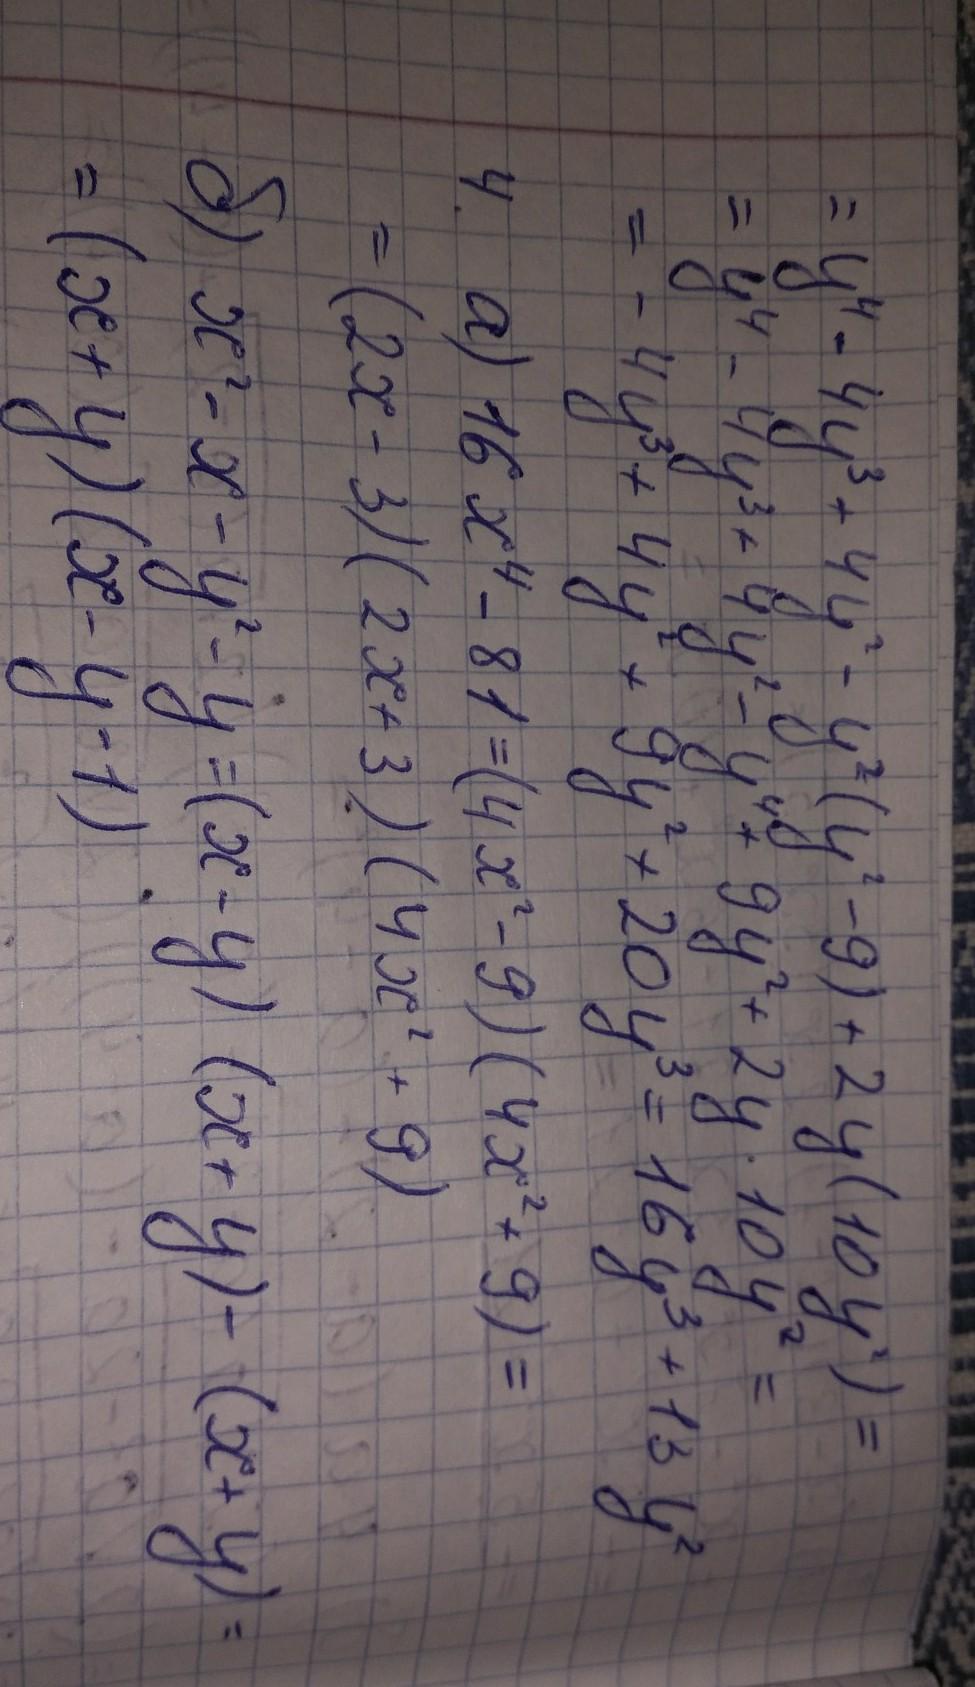 = y⁴ - 4y³ + 4y² - y²(y² - 9) + 2y(10y²) =
= y⁴ - 4y³ + 4y² - y⁴ + 9y² + 2y · 10y² =
= - 4y³ + 4y² + 9y² + 20y³ = 16y³ + 13y²
4. а) 16x⁴ - 81 = (4x² - 9)(4x² + 9) =
= (2x - 3)(2x + 3)(4x² + 9)
б) x² - x - y² - y = (x - y)(x + y) - (x + y) =
= (x + y)(x - y - 1)